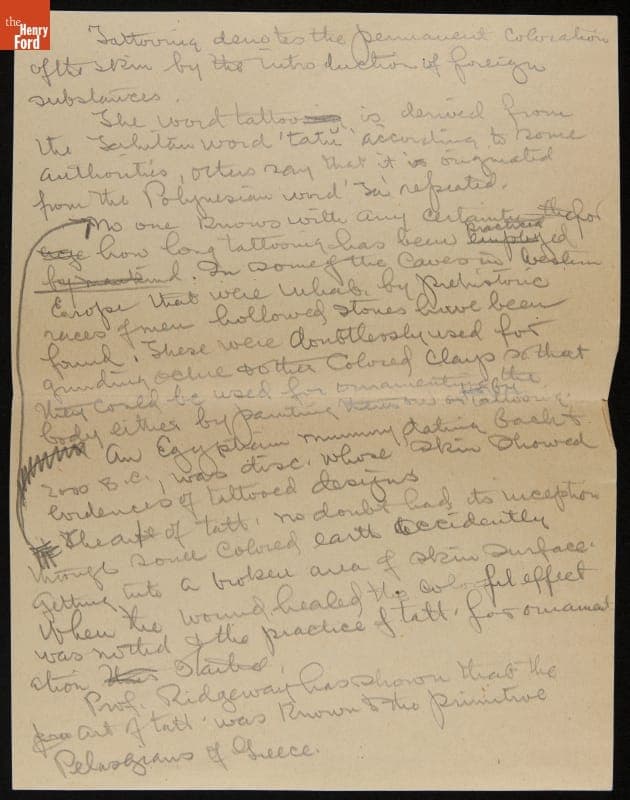 the
Henry
Ford
Tattooing denotes the permanent coloration
of the skin by the introduction of foreign
substances.
The word tattooing is derived from
the Tahitan word 'tatu' according to some
authorities, others say that it is originated
from the Polynesian word 'Ta' repeated.
No one knows with any certainty the for
how long tattooing has been practiced employed
by mankind. In some of the caves in western
Europe that were inhab. by prehistoric
races of men hollowed stones have been
found. These were doubtlessly used for
grinding ochre & other colored clays so that
they could be used for ornamenting the
body either by painting or by tattooing.
An Egyptian mummy dating back to
2000 B.C., was disc. whose skin showed
evidences of tattooed designs
The art of tatt. no doubt had its inception
through some colored earth accidently
getting into a broken area of skin surface.
When the wound healed the colorful effect
was noted & the practice of tatt. for ornament
ation started.
Prof. Ridgeway has shown that the
art of tatt. was known to the primitive
Pelasgians of Greece.